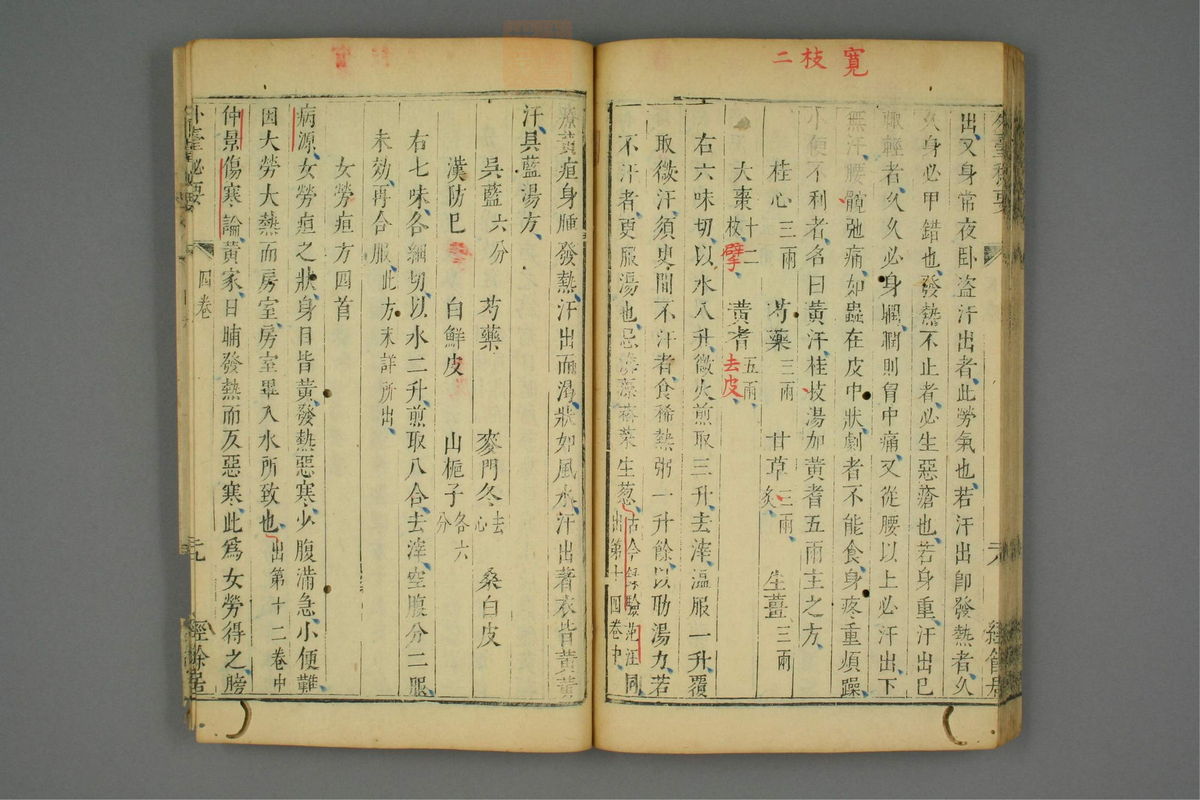 寛枝二
出又身常夜卧盗汗出者此勞氣也若汗出卽發熱者久
久身必甲錯也發熱不止者必生惡瘡也若身重汗出已
輙輕者久久必身瞤瞤則胷中痛又從腰以上必汗出下
無汗腰髖弛痛如蟲在皮中狀劇者不能食身疼重煩躁
小便不利者名曰黃汗桂枝湯加黃耆五兩主之方
桂心三兩 芍藥三兩 甘草三兩炙 生薑三兩
大棗十二枚擘 黃耆五兩去皮
右六味切以水八升微火煎取三升去滓溫服一升覆
取微汗須臾間不汗者食稀熱粥一升餘以助湯力若
不汗者更服湯也忌海藻菘菜生葱古今錄驗范汪同出第十四卷中
療黃疸身腫發熱汗出而渴狀如風水汗出著衣皆黃黃
汗具藍湯方
吳藍六分 芍藥 麥門冬去心 桑白皮
漢防巳 白鮮皮 山梔子各六分
右七味各細切以水二升煎取八合去滓空腹分二服
未効再合服此方未詳所出
女勞疸方四首
病源女勞疸之狀身目皆黃發熱惡寒少腹滿急小便難
因大勞大熱而房室房室畢入水所致也出第十二卷中
仲景傷寒論黃家日晡發熱而反惡寒此爲女勞得之膀
外臺必要 四卷 二九 經餘居